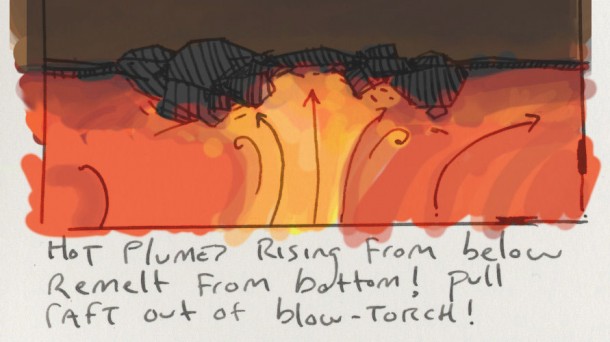 HOT PLUME? RISING From below
Remelt From bottom! pull
rAFT out of blow-TORCH!